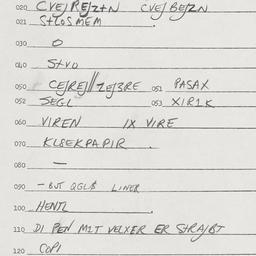 020 CVEJREJZTN CVEJBEJZN
021 STLOSMEM
030 O
040 STVO
050 ZEJ3RE 051 PASAX
052 SEGL 053 XIR1K
060 VIREN IX VIRE
070 KLEEKPAPIR
080 —
090 - BUT LINER
100 HENTL
110 DI PEN MIT VELXER ER
120 COPI